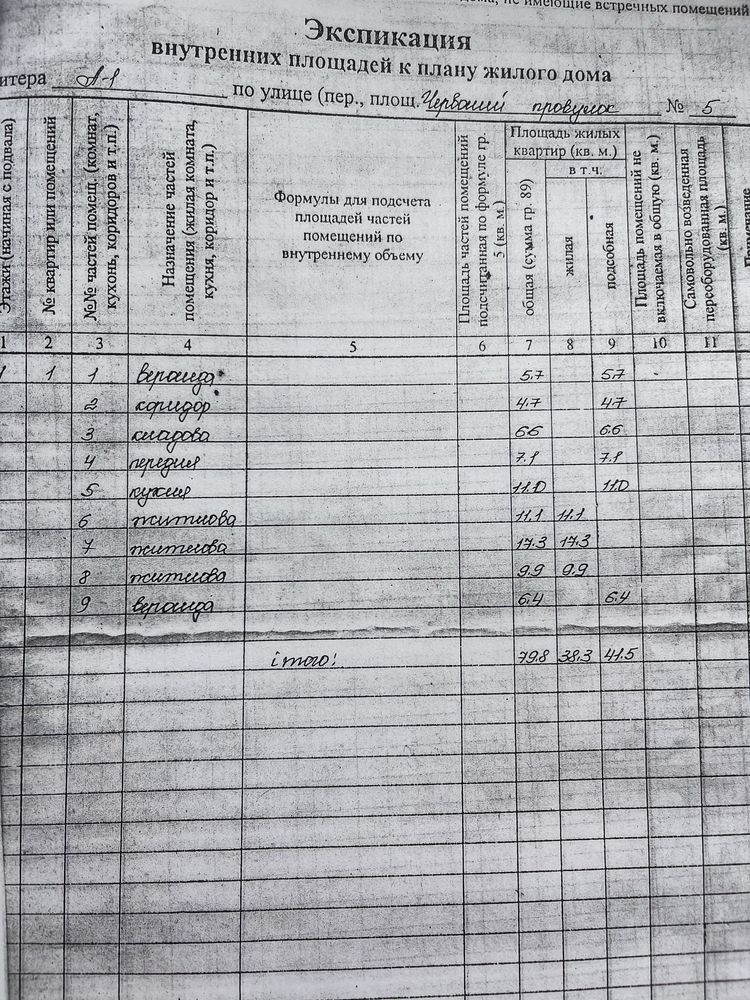 дома, не имеющие встречных помещений
Экспикация
внутренних площадей к плану жилого дома
итера А-1 по улице (пер., площ. Червоний провулок № 5
Этажи (начиная с подвала)
№ квартир или помещений
№№ частей помещ. (комнат, кухонь, коридоров и т.п.)
Назначение частей помещения (жилая комната, кухня, коридор и т.п.)
Формулы для подсчета
площадей частей
помещений по
внутреннему объему
Площадь частей помещений подсчитанная по формуле гр. 5 (кв. м.)
Площадь жилых
квартир (кв. м.)
общая (сумма гр. 89)
в т.ч.
жилая
подсобная
Площадь помещений не включаемая в общую (кв. м.)
Самовольно возведенная переоборудованная площадь (кв. м.)
1 2 3 4 5 6 7 8 9 10 11
1 1 1 веранда 5.7 5.7
2 коридор 4.7 4.7
3 кладова 6.6 6.6
4 передня 7.1 7.1
5 кухня 11.0 11.0
6 житлова 11.1 11.1
7 житлова 17.3 17.3
8 житлова 9.9 9.9
9 веранда 6.4 6.4
ітого! 79.8 38.3 41.5